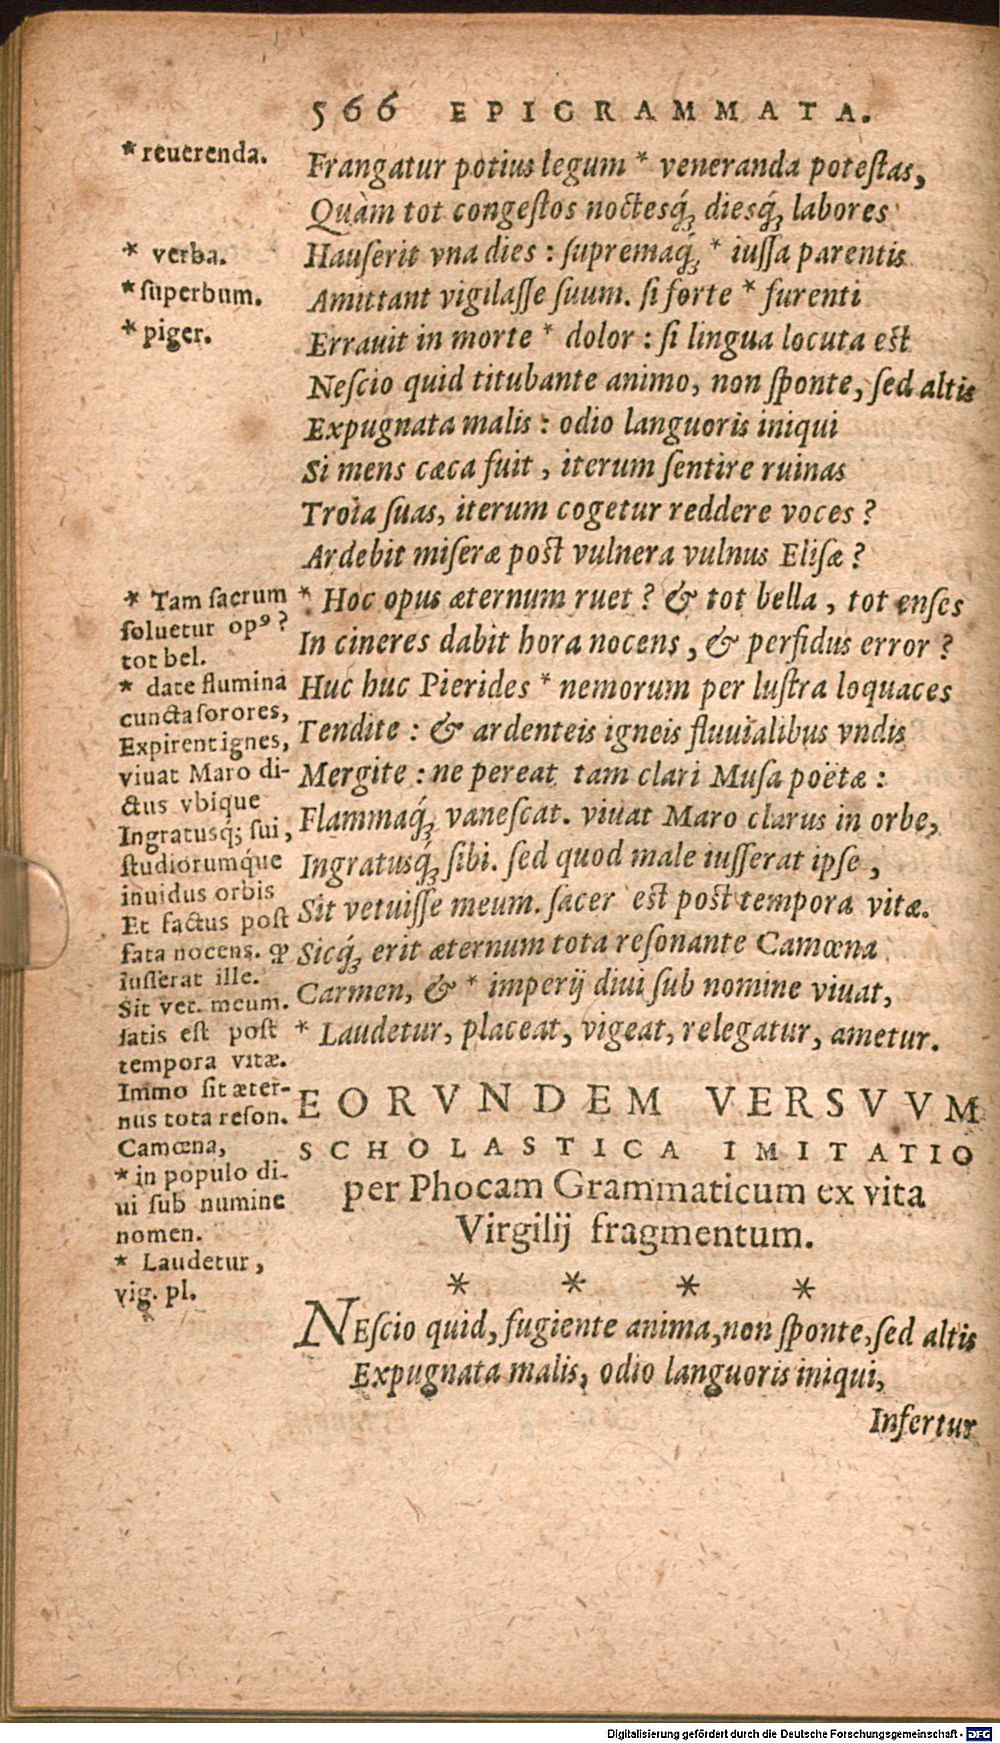 566 EPIGRAMMATA.
* reuerenda.
Frangatur potius legum * veneranda poteſtas,
Quàm tot congeſtos noctesq́; diesq́; labores
* verba.
Hauſerit vna dies : ſupremaq́; * iuſſa parentis
* ſuperbum.
Amittant vigilaſſe ſuum. ſi forte * furenti
* piger.
Errauit in morte * dolor : ſi lingua locuta eſt
Neſcio quid titubante animo, non ſponte, ſed altis
Expugnata malis : odio languoris iniqui
Si mens cæca fuit , iterum ſentire ruinas
Troia ſuas, iterum cogetur reddere voces ?
Ardebit miſeræ poſt vulnera vulnus Eliſæ ?
* Hoc opus æternum ruet ? & tot bella , tot enſes
In cineres dabit hora nocens , & perfidus error ?
Huc huc Pierides * nemorum per luſtra loquaces
Tendite : & ardenteis igneis fluuialibus vndis
Mergite : ne pereat tam clari Muſa poëtæ :
Flammaq́; vaneſcat. viuat Maro clarus in orbe,
Ingratusq́; ſibi. ſed quod male iuſſerat ipſe ,
Sit vetuiſſe meum. ſacer eſt poſt tempora vitæ.
Sicq́; erit æternum tota reſonante Camœna
Carmen, & * imperij diui ſub nomine viuat,
* Laudetur, placeat, vigeat, relegatur, ametur.
* Tam ſacrum
ſoluetur opꝰ ?
tot bel.
* date flumina
cuncta ſorores,
Expirent ignes,
viuat Maro di-
ctus vbique
Ingratusq́; ſui,
ſtudiorumque
inuidus orbis
Et factus poſt
fata nocens. ꝙ
iuſſerat ille.
Sit vet. meum.
ſatis eſt poſt
tempora vitæ.
Immo ſit æter-
nus tota reſon.
Camœna,
* in populo di-
ui ſub numine
nomen.
* Laudetur,
vig. pl.
EORVNDEM VERSVVM
SCHOLASTICA IMITATIO
per Phocam Grammaticum ex vita
Virgilij fragmentum.
* * * *
NEſcio quid, fugiente anima, non ſponte, ſed altis
Expugnata malis, odio languoris iniqui,
Infertur
Digitalisierung gefördert durch die Deutsche Forschungsgemeinschaft - DFG